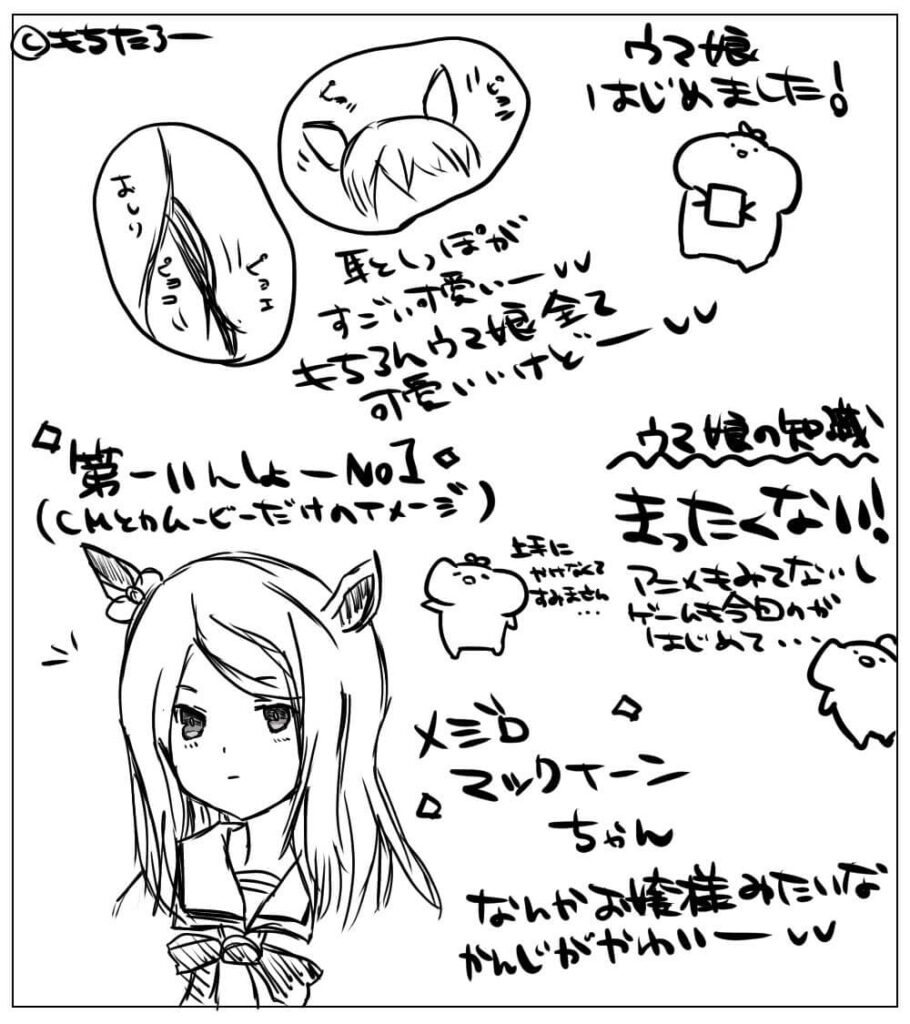 ©もちたろー
ウマ娘
はじめました!
ピョコ
ピョコ
おしり
ピョコ
ピョコ
耳としっぽが
すごい可愛いー
もちろんウマ娘全て
可愛いいけどー
第一いんしょーNo1
(CMとかむーびーだけのイメージ)
ウマ娘の知識
まったくない!
アニメもみてないし
ゲームも今回のが
はじめて・・・
上手に
かけなくて
すみません
・・・
メジロ
マックイーン
ちゃん
なんかお嬢様みたいな
かんじがかわいー